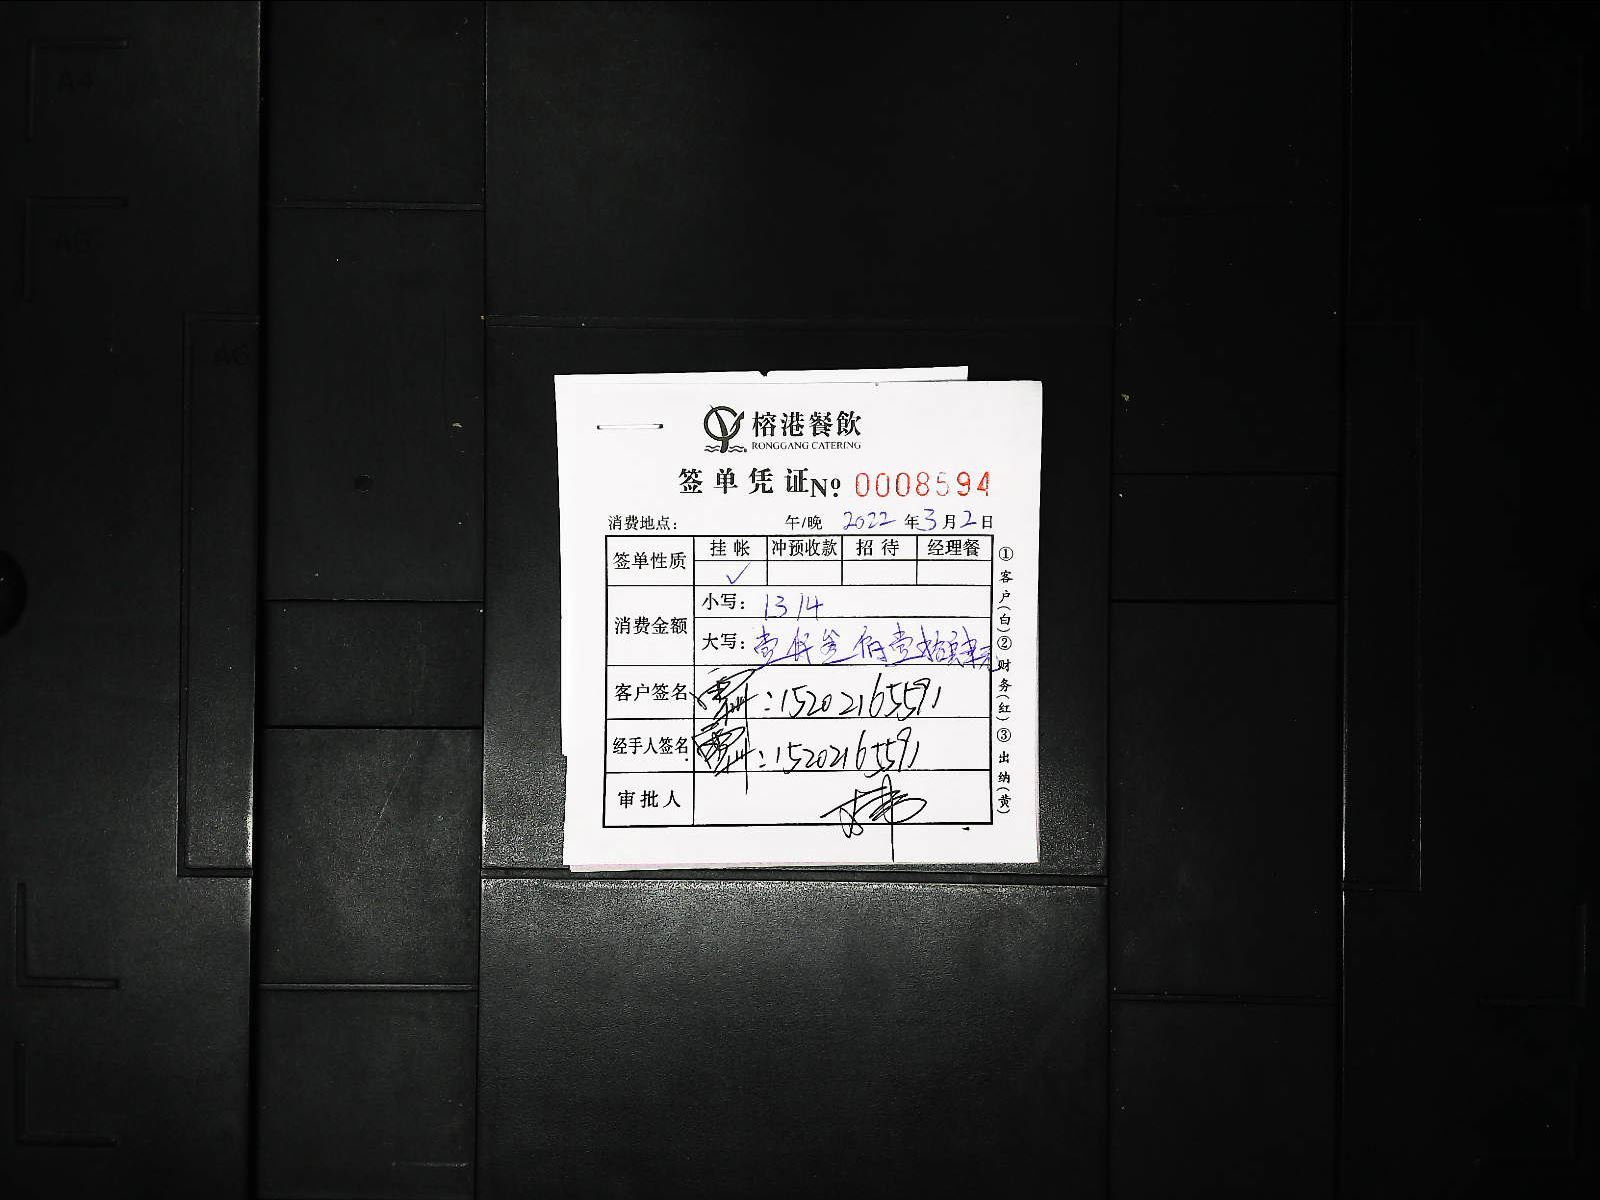 榕港餐飲
RONGGANG CATERING
签单凭证 No 0008594
消费地点： 午/晚 2022 年 3 月 2 日
签单性质 挂帐 冲预收款 招待 经理餐
✓
消费金额 小写：1314
大写：壹仟叁佰壹拾肆元
客户签名 ：15202165591
经手人签名 ：15202165591
审批人
①客户(白)②财务(红)③出纳(黄)
A4
A5
A6